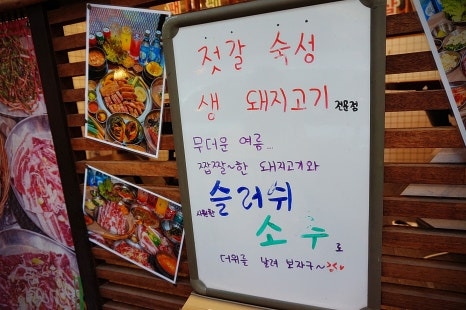 젓갈 숙성
생 돼지고기 전문점
무더운 여름...
짭짤~한 돼지고기와
시원한 슬러쉬
소주로
더위를 날려 보자구~